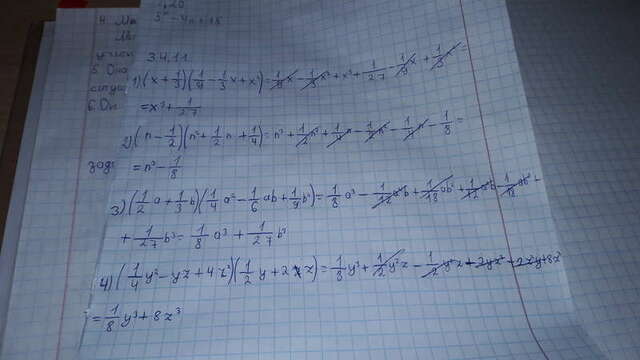 34.11
1) (x + 1/3)(1/9 - 1/3x + x²) = 1/9x - 1/3x² + x³ + 1/27 - 1/9x + 1/3x² =
= x³ + 1/27
2) (n - 1/2)(n² + 1/2n + 1/4) = n³ + 1/2n² + 1/4n - 1/2n² - 1/4n - 1/8 =
= n³ - 1/8
3) (1/2a + 1/3b)(1/4a² - 1/6ab + 1/9b²) = 1/8a³ - 1/12a²b + 1/18ab² + 1/12a²b - 1/18ab² +
+ 1/27b³ = 1/8a³ + 1/27b³
4) (1/4y² - yz + 4z²)(1/2y + 2z) = 1/8y³ + 1/2y²z - 1/2y²z
= 1/8y³ + 8z³